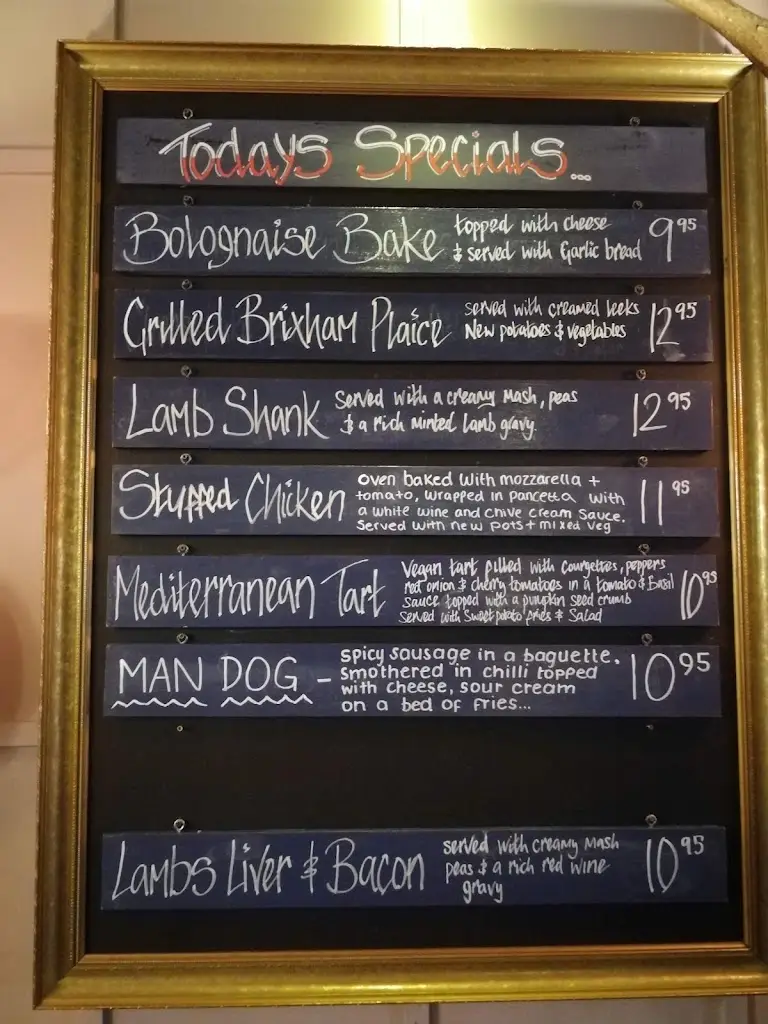 Todays Specials...
Bolognaise Bake topped with cheese & served with Garlic bread 9 95
Grilled Brixham Plaice served with creamed leeks New potatoes & vegetables 12 95
Lamb Shank Served with a creamy mash, peas & a rich minted lamb gravy. 12 95
Stuffed Chicken oven baked with mozzarella + tomato, wrapped in pancetta with a white wine and chive cream sauce. Served with new pots + mixed veg 11 95
Mediterranean Tart Vegan tart filled with courgettes, peppers red onion & cherry tomatoes in a tomato & Basil sauce topped with a pumpkin seed crumb served with sweet potato fries & Salad 10 95
MAN DOG - spicy sausage in a baguette. smothered in chilli topped with cheese, sour cream on a bed of fries... 10 95
Lambs Liver & Bacon served with creamy mash peas & a rich red wine gravy 10 95